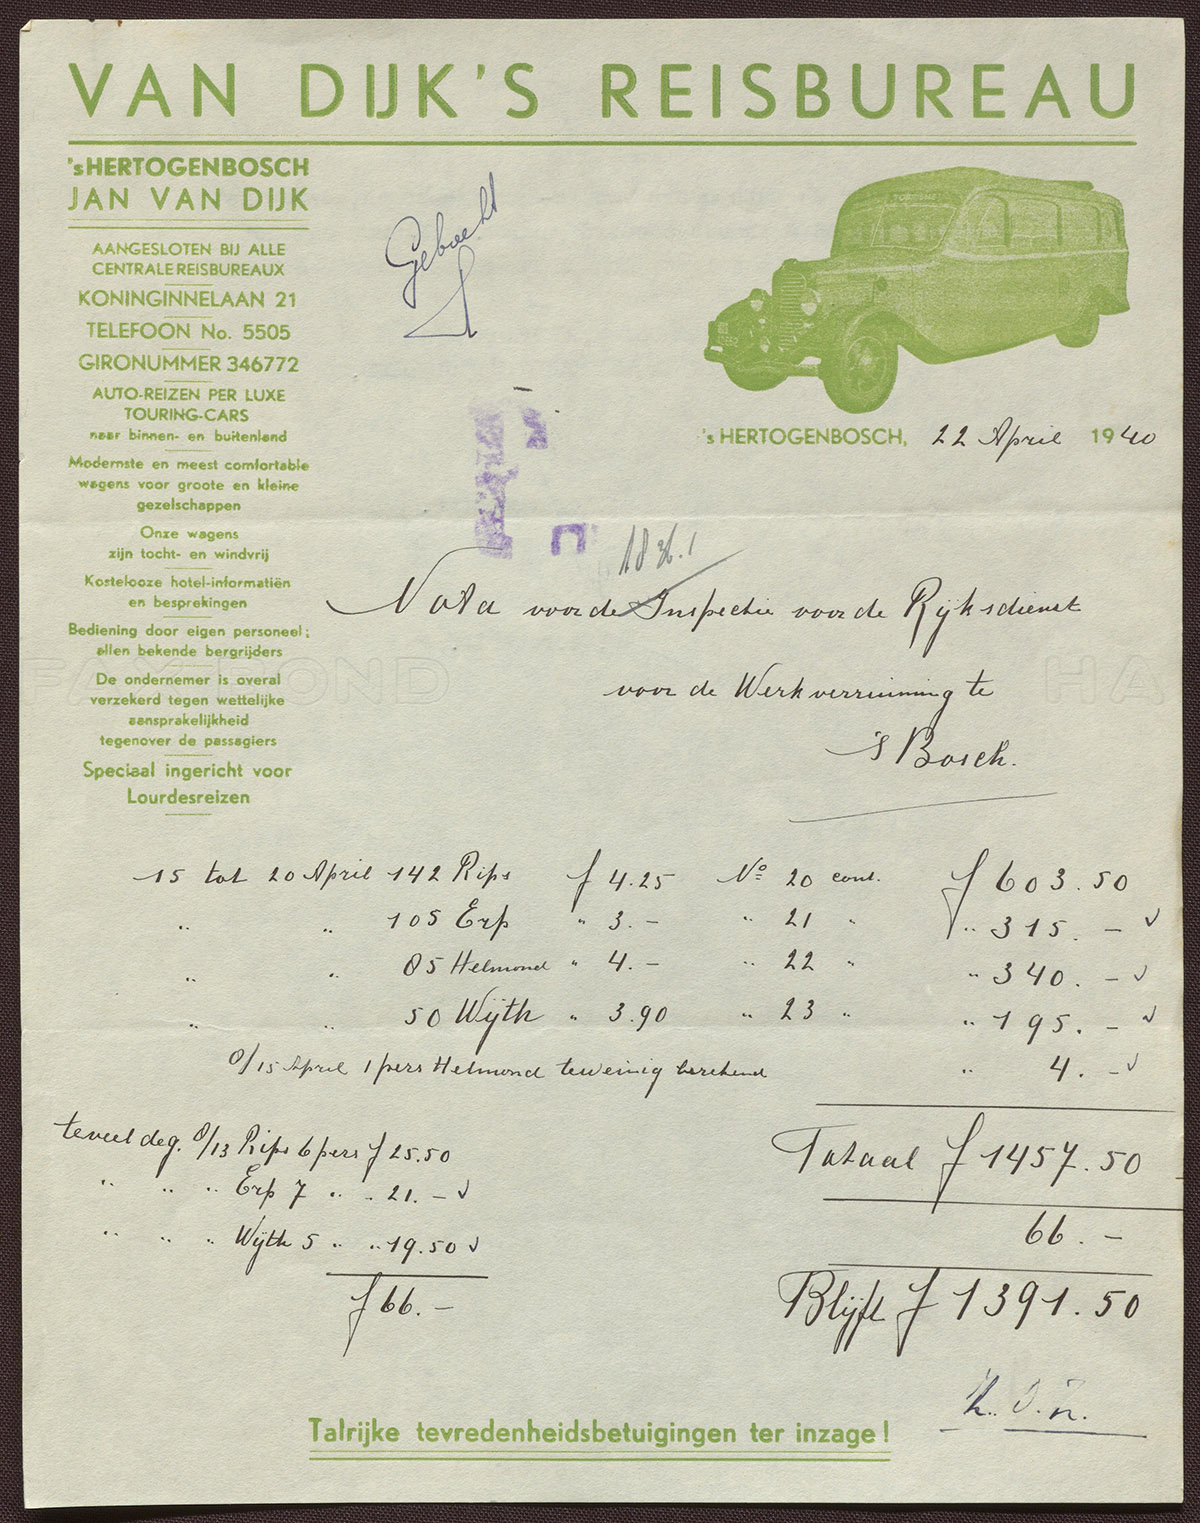 VAN DIJK'S REISBUREAU
'sHERTOGENBOSCH
JAN VAN DIJK
AANGESLOTEN BIJ ALLE
CENTRALE REISBUREAUX
KONINGINNELAAN 21
TELEFOON No. 5505
GIRONUMMER 346772
AUTO-REIZEN PER LUXE
TOURING-CARS
naar binnen- en buitenland
Modernste en meest comfortable
wagens voor groote en kleine
gezelschappen
Onze wagens
zijn tocht- en windvrij
Kostelooze hotel-informatiën
en besprekingen
Bediening door eigen personeel;
allen bekende bergrijders
De ondernemer is overal
verzekerd tegen wettelijke
aansprakelijkheid
tegenover de passagiers
Speciaal ingericht voor
Lourdesreizen
Geboekt
's HERTOGENBOSCH, 22 April 1940
Nota voor de Inspectie voor de Rijksdienst
voor de Werkverruiming te
's Bosch.
15 tot 20 April 142 Rips f 4.25 No 20 cont. f 603.50
" " 105 Erp " 3.- " 21 " " 315.-
" " 85 Helmond " 4.- " 22 " " 340.-
" " 50 Wijth " 3.90 " 23 " " 195.-
8/15 April 1 pers Helmond teweinig berekend " 4.-
Totaal f 1457.50
66.-
Blijft f 1391.50
teveel deg. 8/13 Rips 6 pers f 25.50
" " " Erp 7 " " 21.-
" " " Wijth 5 " " 19.50
f 66.-
Talrijke tevredenheidsbetuigingen ter inzage!